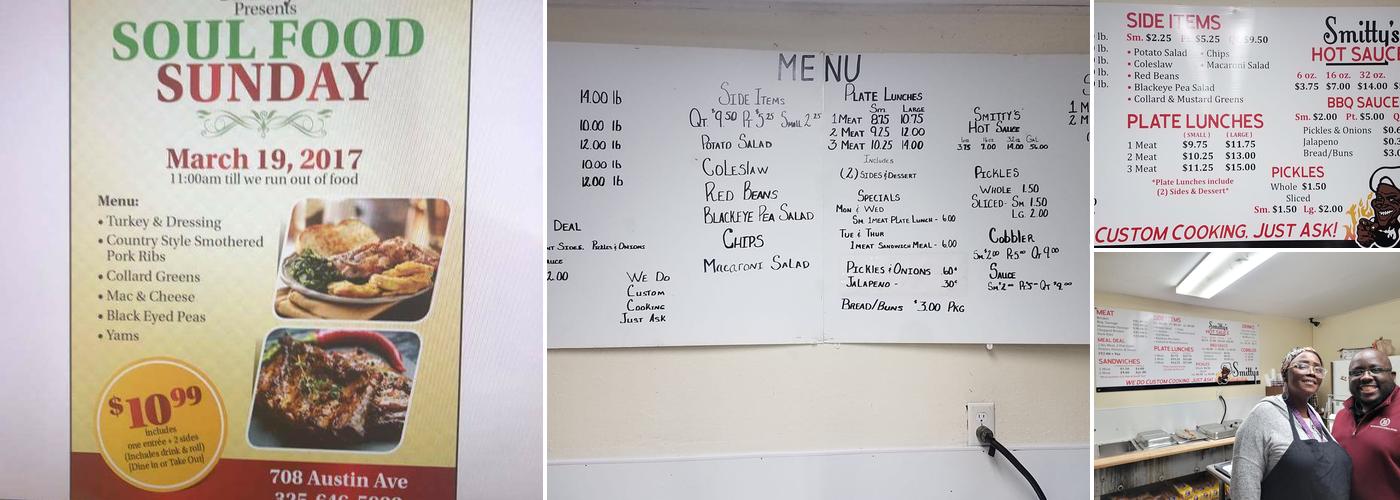 Presents
SOUL FOOD
SUNDAY
March 19, 2017
11:00am till we run out of food
Menu:
• Turkey & Dressing
• Country Style Smothered
Pork Ribs
• Collard Greens
• Mac & Cheese
• Black Eyed Peas
• Yams
$10.99
includes
one entrée + 2 sides
(Includes drink & roll)
[Dine in or Take Out]
708 Austin Ave
MENU
14.00 lb
10.00 lb
12.00 lb
10.00 lb
12.00 lb
DEAL
2.00
WE DO
CUSTOM
COOKING
JUST ASK
SIDE ITEMS
QT $9.50 PT $5.25 SMALL 2.25
POTATO SALAD
COLESLAW
RED BEANS
BLACKEYE PEA SALAD
CHIPS
MACARONI SALAD
PLATE LUNCHES
SM. LARGE
1 MEAT 8.75 10.75
2 MEAT 9.25 12.00
3 MEAT 10.25 14.00
INCLUDES
(2) SIDES & DESSERT
SPECIALS
MON & WED
SM 1 MEAT PLATE LUNCH - 6.00
TUE & THUR
1 MEAT SANDWICH MEAL - 6.00
PICKLES & ONIONS .60¢
JALAPENO - .30¢
BREAD/BUNS $3.00 PKG
SMITTY'S
HOT SAUCE
6oz 16oz 32oz Gal
3.75 7.00 14.00 56.00
PICKLES
WHOLE 1.50
SLICED - SM 1.50
LG. 2.00
COBBLER
SAUCE
lb.
lb.
lb.
lb.
lb.
SIDE ITEMS
Sm. $2.25 $5.25 $9.50
• Potato Salad • Chips
• Coleslaw • Macaroni Salad
• Red Beans
• Blackeye Pea Salad
• Collard & Mustard Greens
PLATE LUNCHES
( SMALL ) ( LARGE )
1 Meat $9.75 $11.75
2 Meat $10.25 $13.00
3 Meat $11.25 $15.00
*Plate Lunches include
(2) Sides & Dessert*
Smitty's
HOT SAUCE
6 oz. 16 oz. 32 oz.
$3.75 $7.00 $14.00
BBQ SAUCE
Sm. $2.00 Pt. $5.00
Pickles & Onions
Jalapeno
Bread/Buns
PICKLES
Whole $1.50
Sliced
Sm. $1.50 Lg. $2.00
CUSTOM COOKING. JUST ASK!
MEAT
MEAL DEAL
SANDWICHES
SIDE ITEMS
PLATE LUNCHES
Smitty's
HOT SAUCE
PICKLES
DRINKS
COBBLER
Smitty's
WE DO CUSTOM COOKING. JUST ASK!